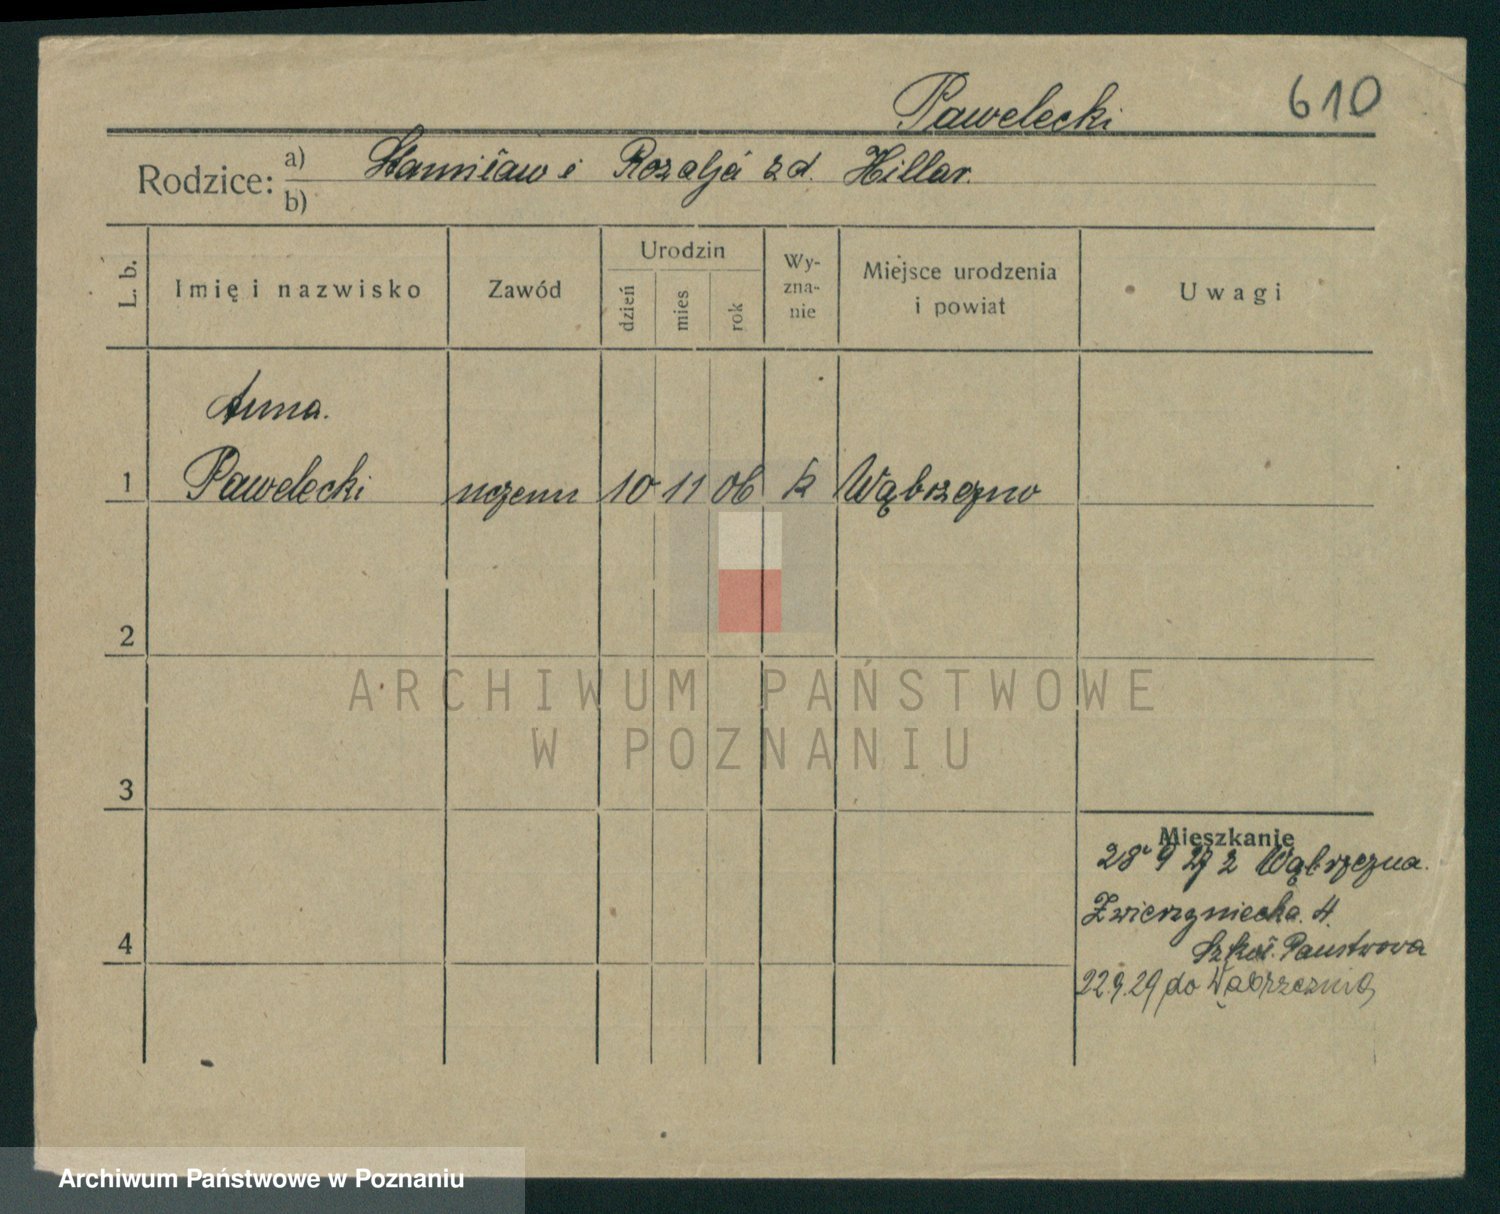 610
Pawelecki
Rodzice: a) Stanisław i Rozalja z d. Hillar.
b)
L. b.
Imię i nazwisko
Zawód
Urodzin
dzień
mies
rok
Wy-
zna-
nie
Miejsce urodzenia
i powiat
Uwagi
Anna.
1 Pawelecki uczenn 10 11 06 k Wąbrzezno
2
ARCHIWUM PAŃSTWOWE
W POZNANIU
3
Mieszkanie
28 9 27 z Wąbrzezna.
Zwierzyniecka. 4
4
Szkoł. Państwowa
22.9.29 do Wąbrzeznia
Archiwum Państwowe w Poznaniu